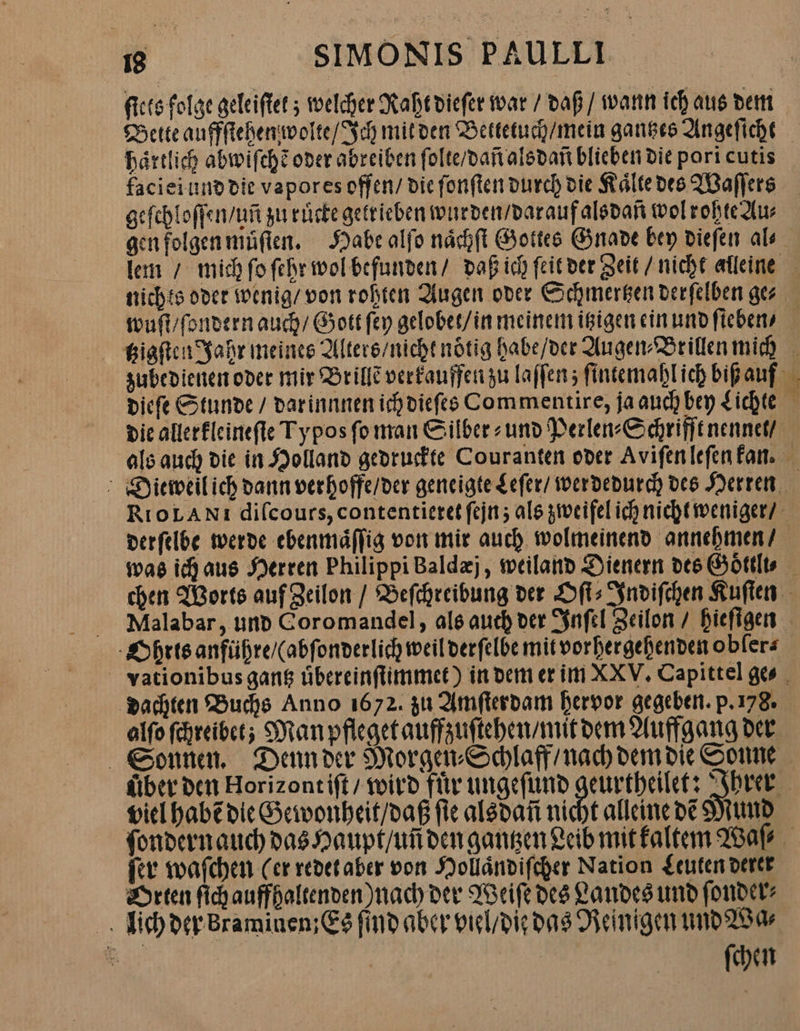 18 SIMONIS PAULLI
ſtets folge geleiſtet; welcher Raht dieſer war / daß / wann ich aus dem
Bette auffſtehen wolte / Ich mit den Bettetuch / mein gantzes Angeſicht
härtlich abwiſchẽ oder abreiben ſolte / dañ alsdañ blieben die pori cutis
faciei und die vapores offen / die ſonſten durch die Kälte des Waſſers
geſchloſſen / uñ zu rücke getrieben wurden / darauf alsdañ wol rohte Au⸗
gen folgen müſten. Habe alſo nächſt Gottes Gnade bey dieſen al⸗
lem / mich ſo ſehr wol befunden / daß ich ſeit der Zeit / nicht alleine
nichts oder wenig / von rohten Augen oder Schmertzen derſelben ge⸗
wuſt / ſondern auch / Gott ſey gelobet / in meinem itzigen ein und ſieben⸗
tzigſten Jahr meines Alters / nicht nötig habe / der Augen⸗Brillen mich
zubedienen oder mir Brillẽ verkauffen zu laſſen; ſintemahl ich biß auf
dieſe Stunde / darinnnen ich dieſes Commentire, ja auch bey Lichte
die allerkleineſte Typos ſo man Silber⸗ und Perlen⸗Schrifft nennet /
als auch die in Holland gedruckte Couranten oder Aviſen leſen kan.
Dieweil ich dann verhoffe / der geneigte Leſer / werde durch des Herren
RIOLANI diſcours, contentieret ſejn; als zweifel ich nicht weniger /
derſelbe werde ebenmäſſig von mir auch wolmeinend annehmen /
was ich aus Herren Philippi Baldæj, weiland Dienern des Göttli⸗
chen Worts auf Zeilon / Beſchreibung der Oſt⸗Indiſchen Kuſten
Malabar, und Coromandel, als auch der Inſel Zeilon / hieſigen
Ohrts anführe / (abſonderlich weil derſelbe mit vorhergehenden obſer⸗
vationibus gantz übereinſtimmet) in dem er im XXV. Capittel ge⸗
dachten Buchs Anno 1672. zu Amſterdam hervor gegeben. p. 178.
alſo ſchreibet; Man pfleget auffzuſtehen / mit dem Auffgang der
Sonnen. Denn der Morgen⸗Schlaff / nach dem die Sonne
über den Horizont iſt / wird für ungeſund geurtheilet: Ihrer
viel habẽ die Gewonheit / daß ſie alsdañ nicht alleine dẽ Mund
ſondern auch das Haupt / uñ den gantzen Leib mit kaltem Waſ⸗
ſer waſchen (er redet aber von Holländiſcher Nation Leuten derer
Orten ſich auffhaltenden) nach der Weiſe des Landes und ſonder⸗
lich der Braminen; Es ſind aber viel / die das Reinigen und Wa⸗
ſchen